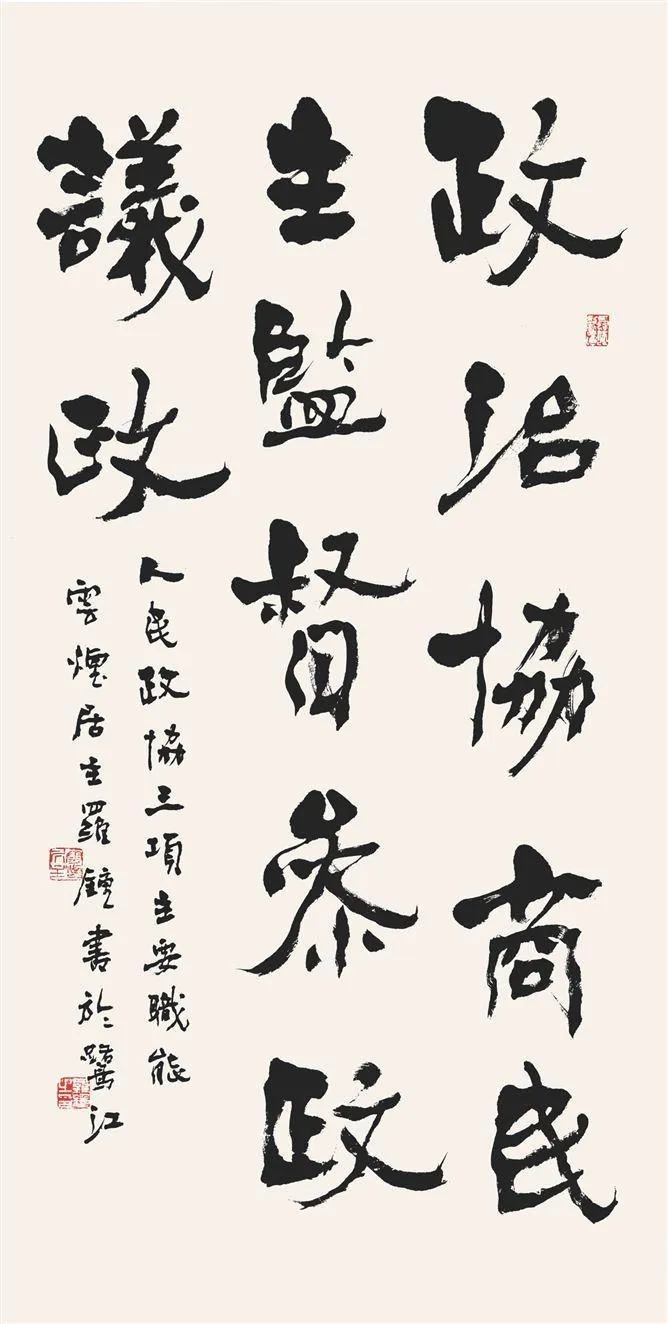 政治協商民
主監督參政
議政
人民政協三項主要職能
雲煙居主羅鐘書於鷺江